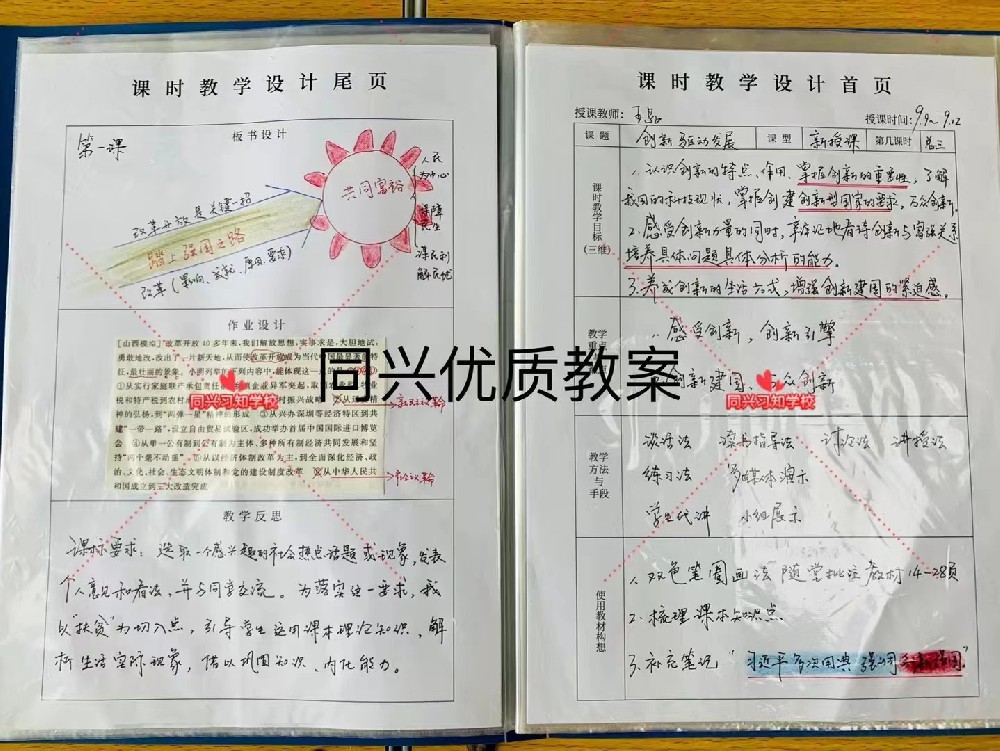 课时教学设计尾页
板书设计
第一课
改革开放是关键一招
踏上强国之路
改革(
共同富裕
人民
为中心
保障
民生
作业设计
[山西模拟]"改革开放40多年来,我们解放思想,实事求是,大胆地试,
勇敢地改,改出了一片新天地,从而使改革开放成为当代中国最显著的特
征,最壮丽的
①从实行家庭联产承包责任
税和特产税到农村
神的弘扬,到"两弹一星"精神的形成 ③从兴办深圳等经济特区到共
建"一带一路",设立自由贸易试验区,成功举办首届中国国际进口博览
会 ④从单一公有制到公有制为主体、多种所有制经济共同发展和坚
持"两个毫不动摇" ⑤从以经济体制改革为主,到全面深化经济、政
治、文化、社会、生态文明体制和党的建设制度改革 ⑥从中华人民共
和国成立到三大改造完成
教学反思
课标要求:选取一个感兴趣的社会热点话题或现象,发表
个人意见和看法,并与同学交流。为落实这一要求,我
以"扶贫"为切入点,引导学生运用课本理论知识,解
析生活实际现象,借以巩固知识、内化能力。
同兴习知学校
同兴优质教案
课时教学设计首页
授课教师:
授课时间:9.9~9.12
课题 创新驱动发展 课型 新授课 第几课时
课时教学目标(三维)
1.认识创新的特点、作用,掌握创新的重要性,了解
我国的科技现状,掌握创建创新型国家的要求,万众创新。
2.感受创新力量的同时,辩证地看待创新与富强关系
培养具体问题具体分析的能力。
3.养成创新的生活方式,增强创新建国的紧迫感。
教学
1.感受创新,创新引擎
创新建国,万众创新
同兴习知学校
教学方法与手段
谈话法 读书指导法 讨论法 讲授法
练习法 多媒体演示
学生代讲 小组展示
使用教材构想
1.双色笔圈画法随堂批注教材14-28页
2.梳理课本知识点
3.补充笔记"习近平